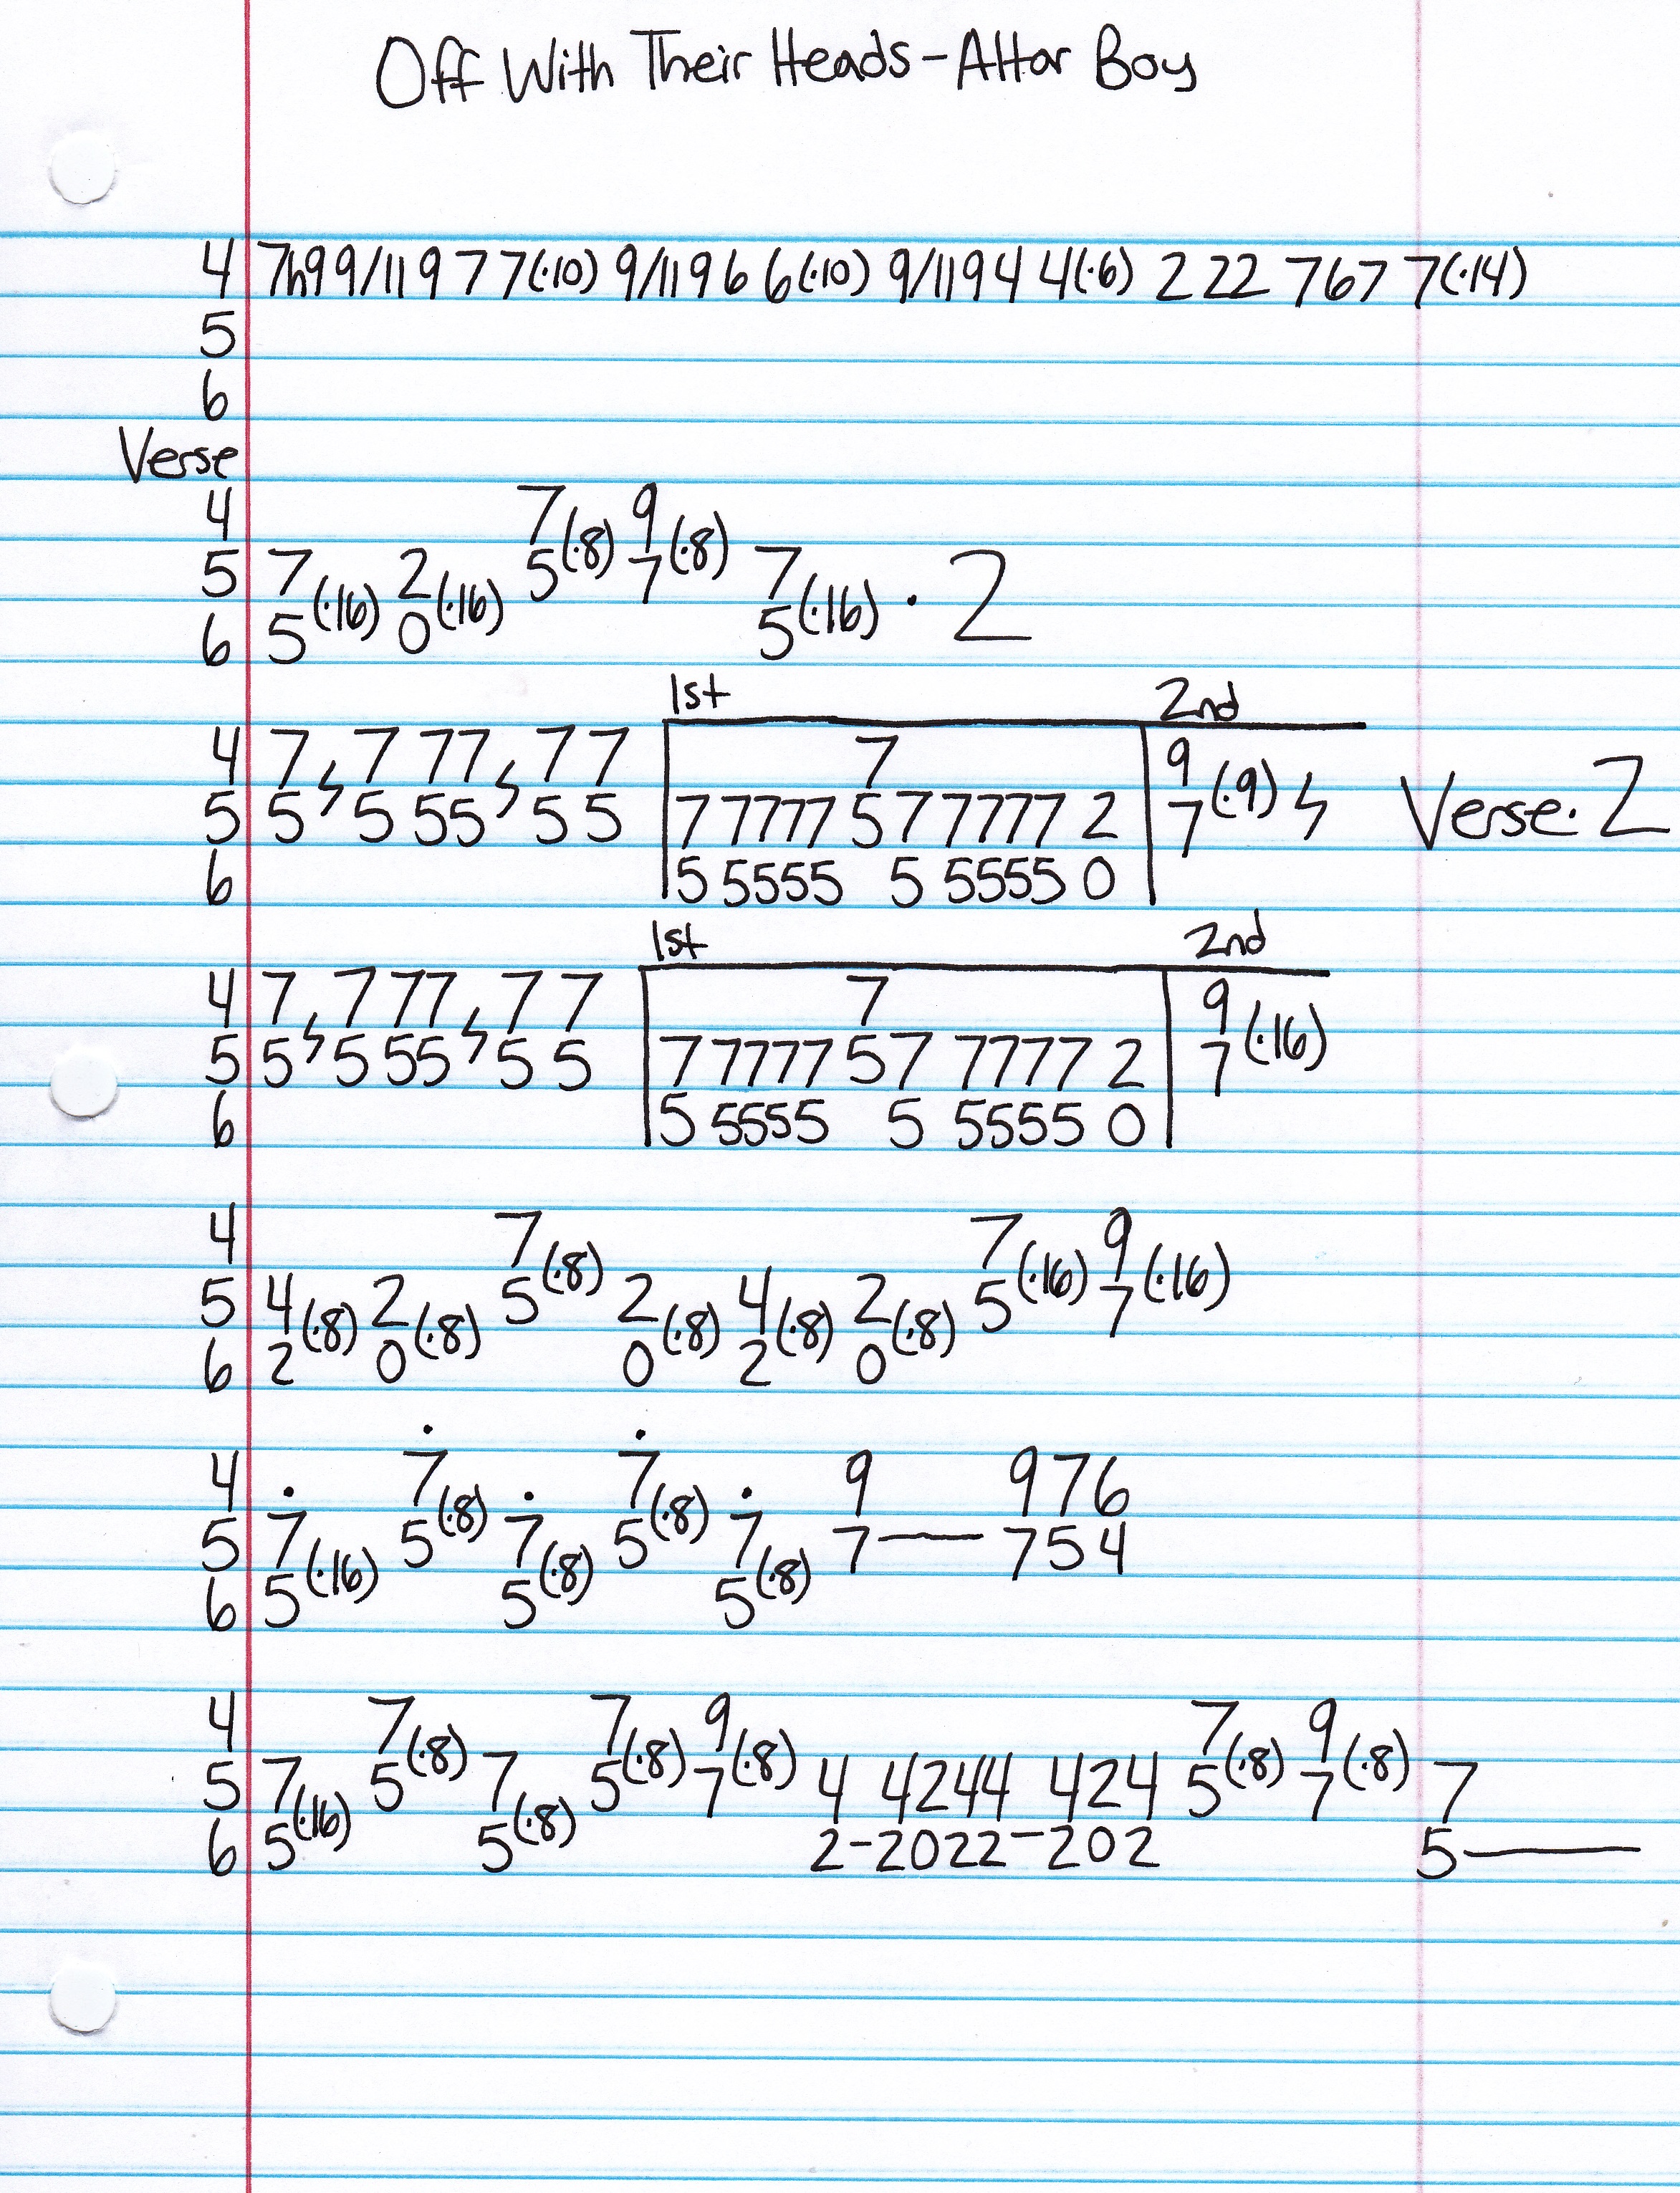 Off With Their Heads - Altar Boy
4 7h9 9/11 9 7 7(·10) 9/11 9 6 6(·10) 9/11 9 4 4(·6) 2 22 767 7(·14)
5
6
Verse
4 7 9
5 7 2 5(·8) 7(·8) 7
6 5(·16) 0(·16) 5(·16) · 2
1st 2nd
4 7 𝄽 7 77 𝄽 7 7 7 9
5 5 5 55 5 5 7 7777 5 7 7777 2 7(·9) 𝄽 Verse · 2
6 5 5555 5 5555 0
1st 2nd
4 7 𝄽 7 77 𝄽 7 7 7 9
5 5 5 55 5 5 7 7777 5 7 7777 2 7(·16)
6 5 5555 5 5555 0
4 7 7 9
5 4 2 5(·8) 2 4 2 5(·16) 7(·16)
6 2(·8) 0(·8) 0(·8) 2(·8) 0(·8)
4 7̇ 7̇ 9 976
5 7̇ 5(·8) 7̇ 5(·8) 7̇ 7— 754
6 5(·16) 5(·8) 5(·8)
4 7 7 9 7 9
5 7 5(·8) 7 5(·8) 7(·8) 4 4244 424 5(·8) 7(·8) 7
6 5(·16) 5(·8) 2-2022-202 5—